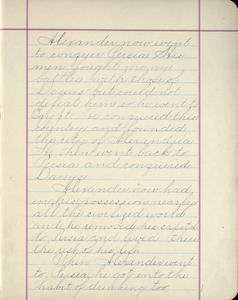 Alexander now went
to conquer Persia. His
men fought many
battles with those of
Darius but could not
defeat him so he went to
Egypt. He conquered this
country and founded
the city of Alexandria
He then went back to
Persia and conquered
Darius.
Alexander now had
in his possession nearly
all the civilized world
and he removed his capital
to Persia and lived there
the rest of his life.
When Alexander went
to Persia, he got into the
habit of drinking too